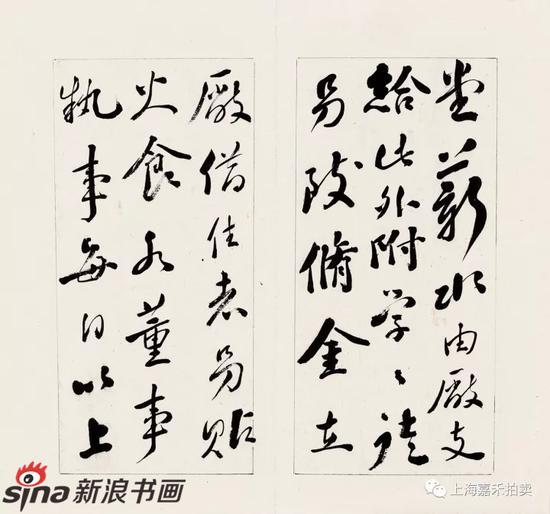 堂薪水由廠支
給此外附學
另脩金
廠借住者另貼
火食董事
執事每日以上
sina新浪书画
上海嘉禾拍卖